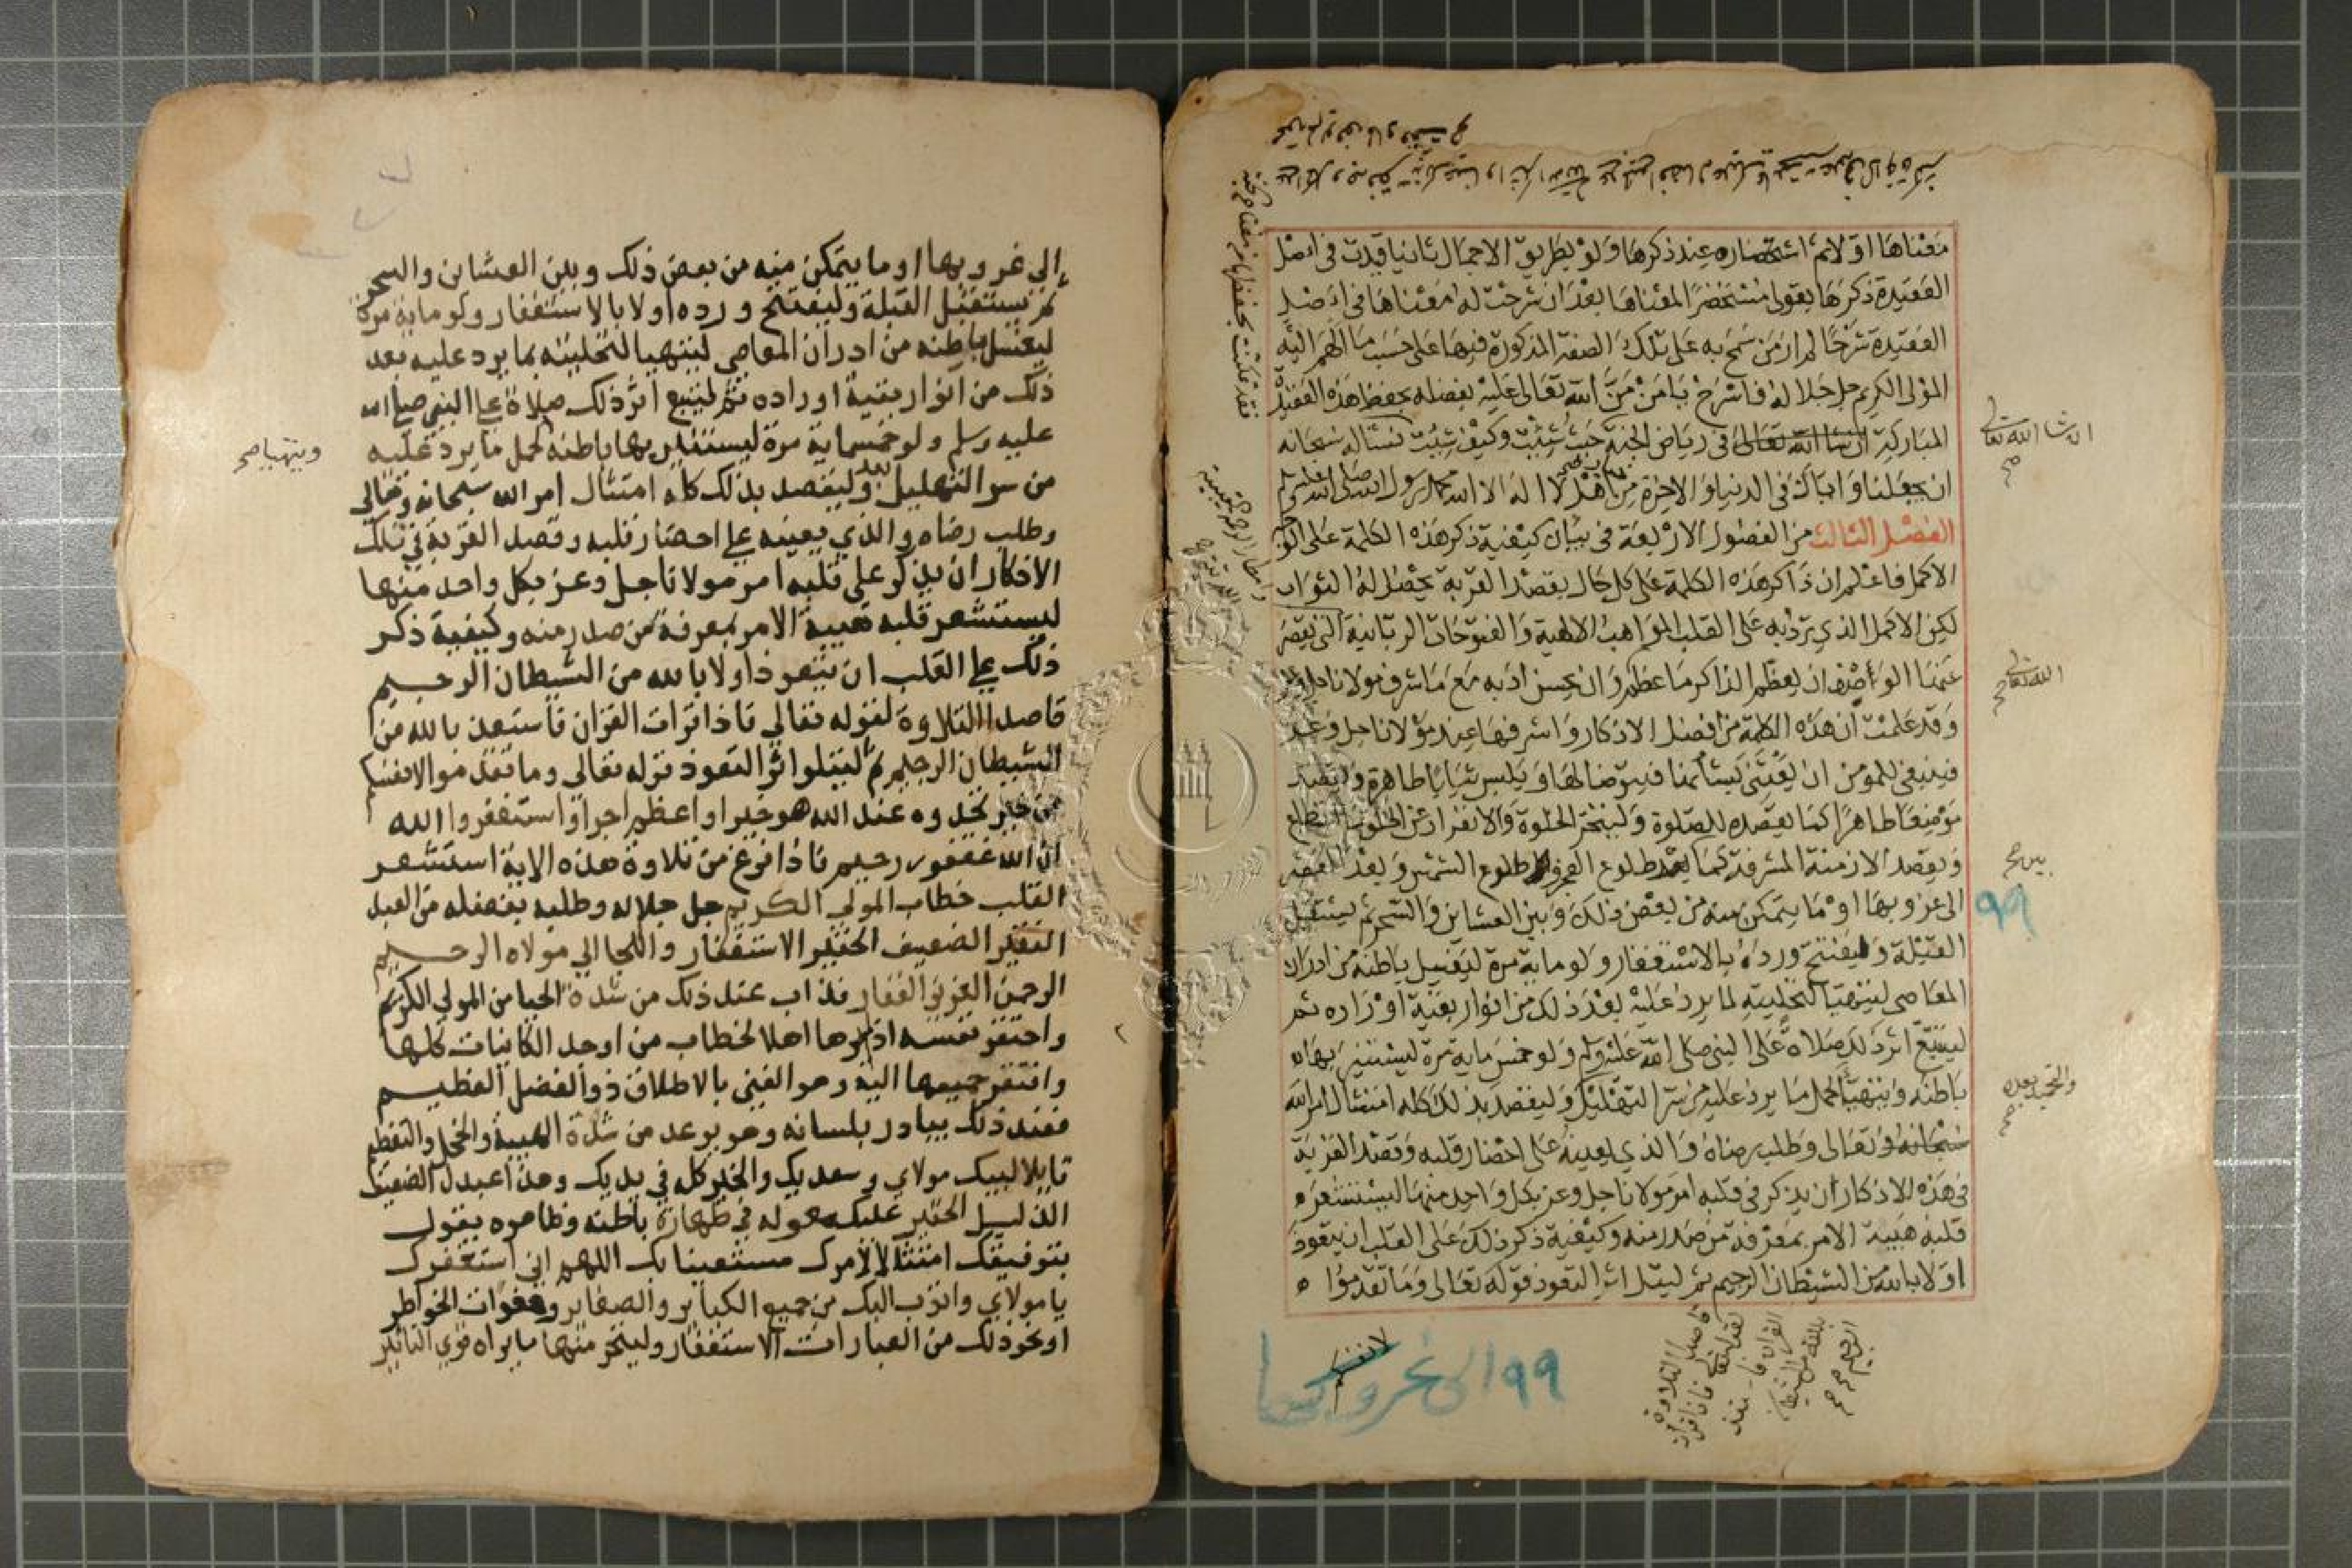 معناها اولا ثم استحضاره عند ذكرها ولو بطريق الاجمال ثانيا قيدت في اصل
العقيدة ذكرها بقولي مستحضرا لمعناها بعد ان شرحت له معناها في اصل
العقيدة شرحا لم ار من سمح به على تلك الصفة المذكورة فيها على حسب ما الهم اليه
المولى الكريم جل جلاله فاسرح يا من من الله تعالى عليه بفضله بحفظ هذه العقيدة
المباركة ان شا الله تعالى في رياض الجنة حيث شئت وكيف شئت نساله سبحانه
ان يجعلنا واياك في الدنيا والاخرة من اهل لا اله الا الله محمد رسول الله صلى الله عليه وسلم
الفصل الثالث من الفصول الاربعة في بيان كيفية ذكر هذه الكلمة على الوجه
الاكمل فاعلم ان ذاكر هذه الكلمة على كل حال بقصد القربة يحصل له الثواب
لكن الاكمل الذي ترد به على القلب المواهب الالهية والفتوحات الربانية التي يقصر
عنها الوصف ان يعظم الذاكر ما عظم وان يحسن ادبه مع ما شرف مولانا جل وعز
وقد علمت ان هذه الكلمة من افضل الاذكار واشرفها عند مولانا جل وعز
فينبغي للمومن ان يعتني بشانها فيتوضا لها ويلبس ثيابا طاهرة وليقصد
موضعا طاهرا كما يقصده للصلوة وليتحر الخلوة والانفراد عن الخلق ما استطاع
ويقصد الازمنة المشرفة كما بعد طلوع الفجر الى طلوع الشمس وبعد العصر
الى غروبها او ما يتمكن منه من بعض ذلك وبين العشاين والسحر ثم يستقبل
القبلة وليفتتح ورده بالاستغفار ولو ماية مرة ليغسل باطنه من ادران
المعاصي ليتهيا لتحليته لما يرد عليه بعد ذلك من انوار بقية اوراده ثم
ليتبع اثر ذلك صلاة على النبي صلى الله عليه وسلم ولو خمس ماية مرة ليستنير بها
باطنه ويتهيا لحمل ما يرد عليه من سر التهليل وليقصد بذلك كله امتثال امر الله
سبحانه وتعالى وطلب رضاه والذي يعينه على احضار قلبه وقصد القربة
في هذه الاذكار ان يذكر في قلبه امر مولانا جل وعز بكل واحد منها ليستشعر
قلبه هيبة الامر بمعرفة من صدر منه وكيفية ذكر ذلك على القلب ان يتعوذ
اولا بالله من الشيطان الرجيم ثم ليتل اثر التعوذ قوله تعالى وما تقدموا
ان شا الله تعالى
صح
الله تعالى
صح
بين صح
٩٩
والتحميد بعده
صح
قاصدا التلاوة
لقوله تعالى فاذا قرات
القران فاستعذ
بالله من الشيطان
الرجيم صح صح
لانفسكم
٩٩ الى غروبها
الى غروبها او ما يتمكن منه من بعض ذلك وبين العشاين والسحر
ثم يستقبل القبلة وليفتتح ورده اولا بالاستغفار ولو ماية مرة
ليغسل باطنه من ادران المعاصي ليتهيا لتحليته بما يرد عليه بعد
ذلك من انوار بقية اوراده ثم ليتبع اثر ذلك صلاة على النبي صلى الله
عليه وسلم ولو خمسماية مرة ليستنير بها باطنه لحمل ما يرد عليه
ويتهيا صح
من سر التهليل بعد وليقصد بذلك كله امتثال امر الله سبحانه وتعالى
وطلب رضاه والذي يعينه على احضار قلبه وقصد القربة في تلك
الاذكار ان يذكر على قلبه امر مولانا جل وعز بكل واحد منها
ليستشعر قلبه هيبة الامر بمعرفة من صدر منه وكيفية ذكر
ذلك على القلب ان يتعوذ اولا بالله من الشيطان الرجيم
قاصدا التلاوة لقوله تعالى فاذا قرات القران فاستعذ بالله من
الشيطان الرجيم ثم ليتلوا اثر التعوذ قوله تعالى وما تقدموا لانفسكم
من خير تجدوه عند الله هو خيرا واعظم اجرا واستغفروا الله
ان الله غفور رحيم فاذا فرغ من تلاوة هذه الاية استشعر
القلب خطاب المولى الكريم جل جلاله وطلبه بفضله من العبد
الفقير الضعيف الحقير الاستغفار واللجا الى مولاه الرحيم
الرحمن العزيز الغفار فذاب عند ذلك من شدة الحيا من المولى الكريم
واحتقر نفسه اذ لم يرها اهلا لخطاب من اوجد الكاينات كلها
وافتقر جميعها اليه وهو الغني بالاطلاق ذو الفضل العظيم
فعند ذلك يبادر بلسانه وهو يرعد من شدة الهيبة والخجل والتعظيم
قايلا لبيك مولاي وسعديك والخير كله في يديك وهذا عبدك الضعيف
الذليل الحقير عليك معوله في طهارة باطنه وظاهره يقول
بتوفيقك امتثالا لامرك مستعينا بك اللهم اني استغفرك
يا مولاي واتوب اليك من جميع الكباير والصغاير وهفوات الخواطر
او نحو ذلك من العبارات الاستغفار وليتحر منها ما يراه قوي التاثير